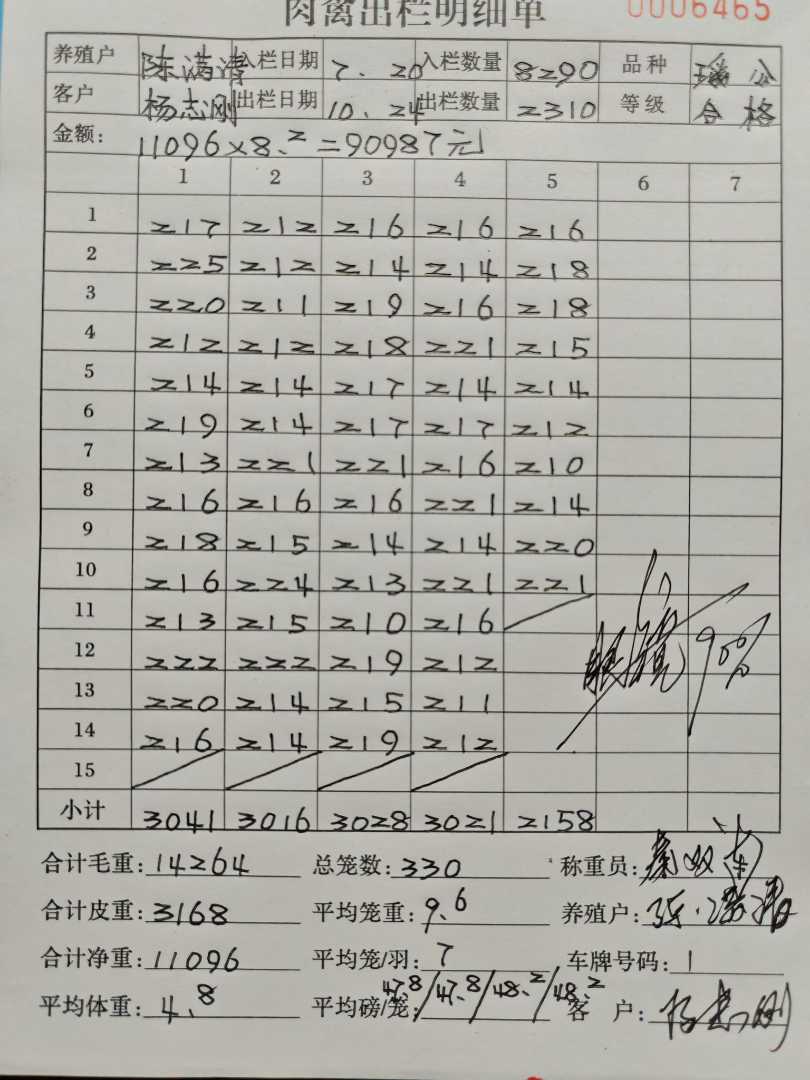 肉禽出栏明细单 0006465
养殖户 陈满清 入栏日期 7.20 入栏数量 8290 品种 瑶公
客户 杨志刚 出栏日期 10.24 出栏数量 2310 等级 合格
金额: 11096×8.2=90987元
1 2 3 4 5 6 7
1 217 212 216 216 216
2 225 212 214 214 218
3 220 211 219 216 218
4 212 212 218 221 215
5 214 214 217 214 214
6 219 214 217 217 212
7 213 221 221 216 210
8 216 216 216 221 214
9 218 215 214 214 220
10 216 224 213 221 221
11 213 215 210 216
12 222 222 219 212
90%
13 220 214 215 211
14 216 214 219 212
15
小计 3041 3016 3028 3021 2158
合计毛重: 14264 总笼数: 330 称重员:
合计皮重: 3168 平均笼重: 9.6 养殖户:
合计净重: 11096 平均笼/羽: 7 车牌号码: 1
平均体重: 4.8 平均磅/笼: 47.8/47.8/48.2/48.2 客户: 杨志刚